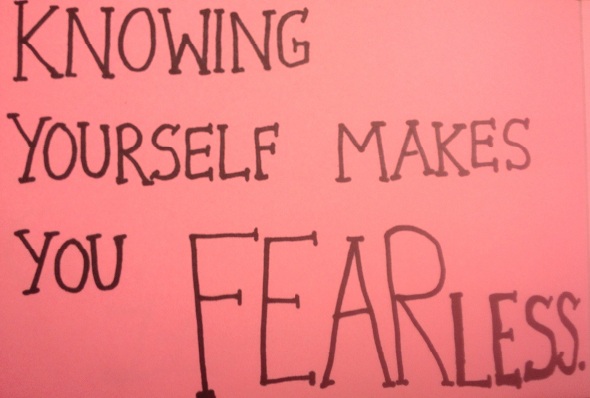 KNOWING
YOURSELF MAKES
YOU FEARLESS.